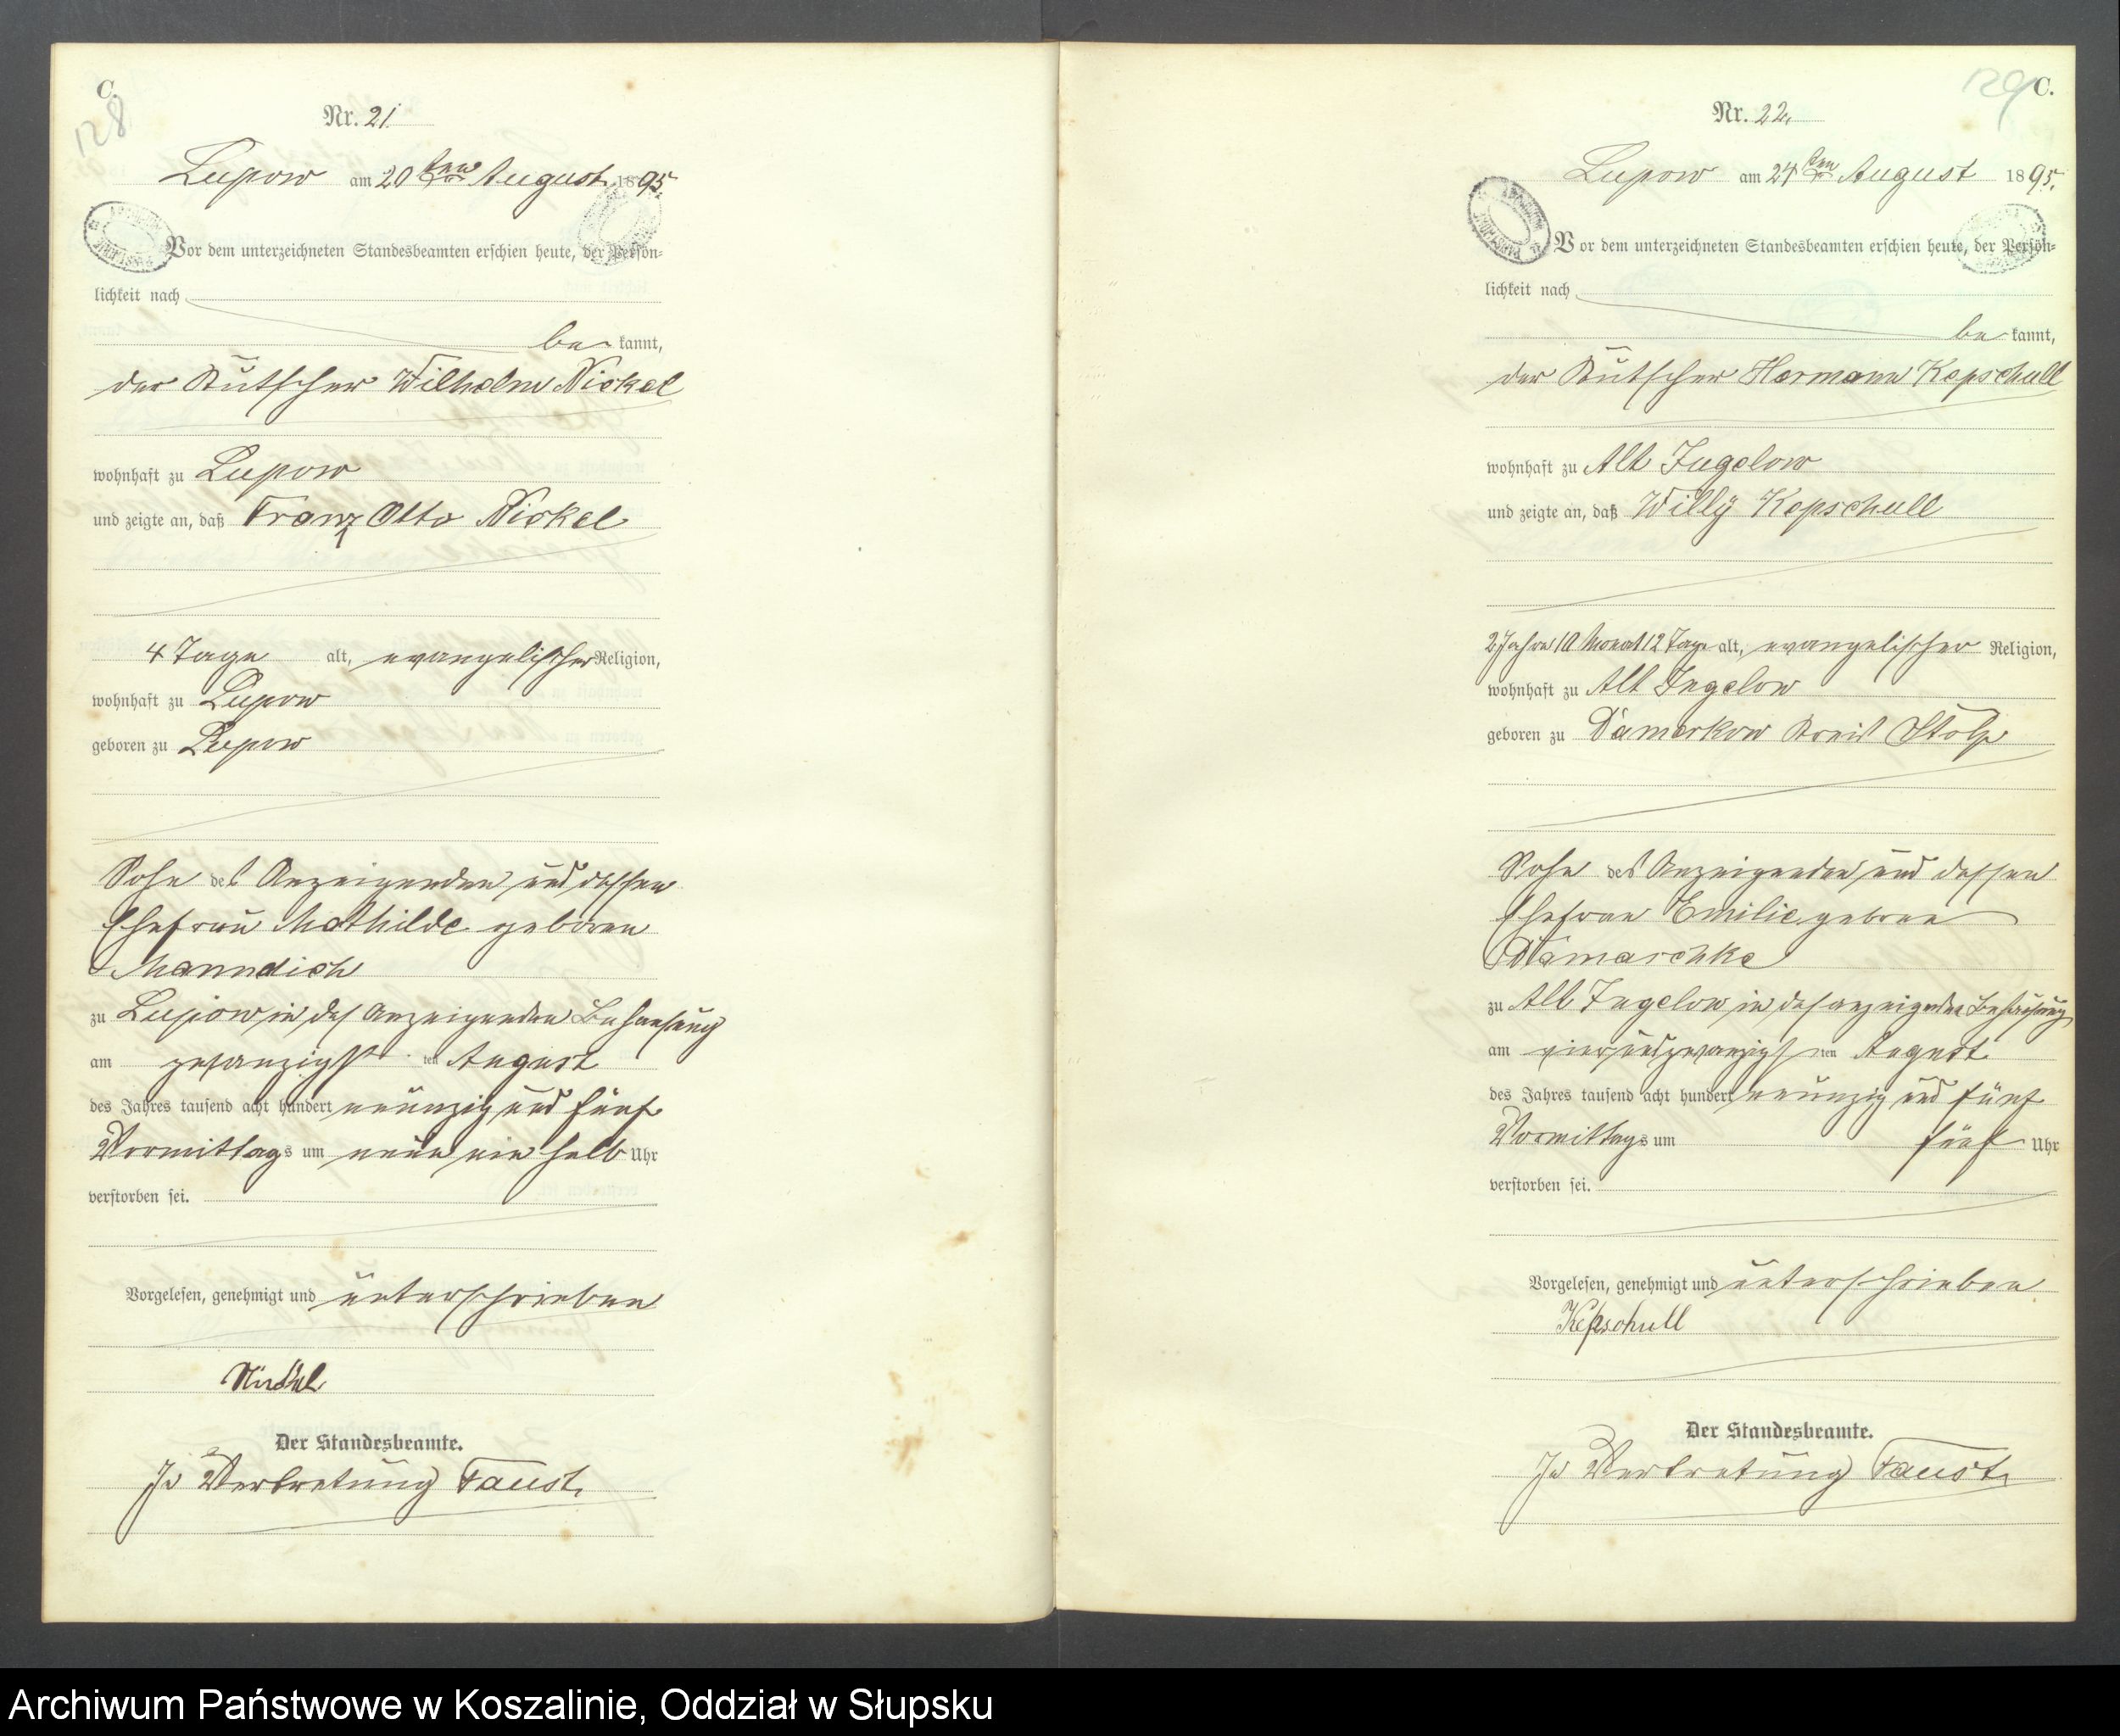 C.
128
Nr. 21.
Lupow am 20ten August 1895.
Vor dem unterzeichneten Standesbeamten erschien heute, der Persön-
lichkeit nach
be kannt,
der Kutscher Wilhelm Nickel
wohnhaft zu Lupow
und zeigte an, daß Franz Otto Nickel
4 Tage alt, evangelischer Religion,
wohnhaft zu Lupow
geboren zu Lupow
Sohn des Anzeigenden und dessen
Ehefrau Mathilde geboren
Manndich
zu Lupow in des Anzeigenden Behausung
am zwanzigsten August
des Jahres tausend acht hundert neunzig und fünf
Vormittags um neun ein halb Uhr
verstorben sei.
Vorgelesen, genehmigt und unterschrieben
Nickel
Der Standesbeamte.
In Vertretung Faust.
129
C.
Nr. 22.
Lupow am 24ten August 1895.
Vor dem unterzeichneten Standesbeamten erschien heute, der Persön-
lichkeit nach
be kannt,
der Kutscher Hermann Kepschull
wohnhaft zu Alt Jugelow
und zeigte an, daß Willy Kepschull
2 Jahre 10 Monat 12 Tage alt, evangelischer Religion,
wohnhaft zu Alt Jugelow
geboren zu Damerkow Kreis Stolp
Sohn des Anzeigenden und dessen
Ehefrau Emilie geboren
Damaschke
zu Alt Jugelow in des anzeigenden Behausung
am vierundzwanzigsten August
des Jahres tausend acht hundert neunzig und fünf
Vormittags um fünf Uhr
verstorben sei.
Vorgelesen, genehmigt und unterschrieben
Kepschull
Der Standesbeamte.
In Vertretung Faust.
Archiwum Państwowe w Koszalinie, Oddział w Słupsku